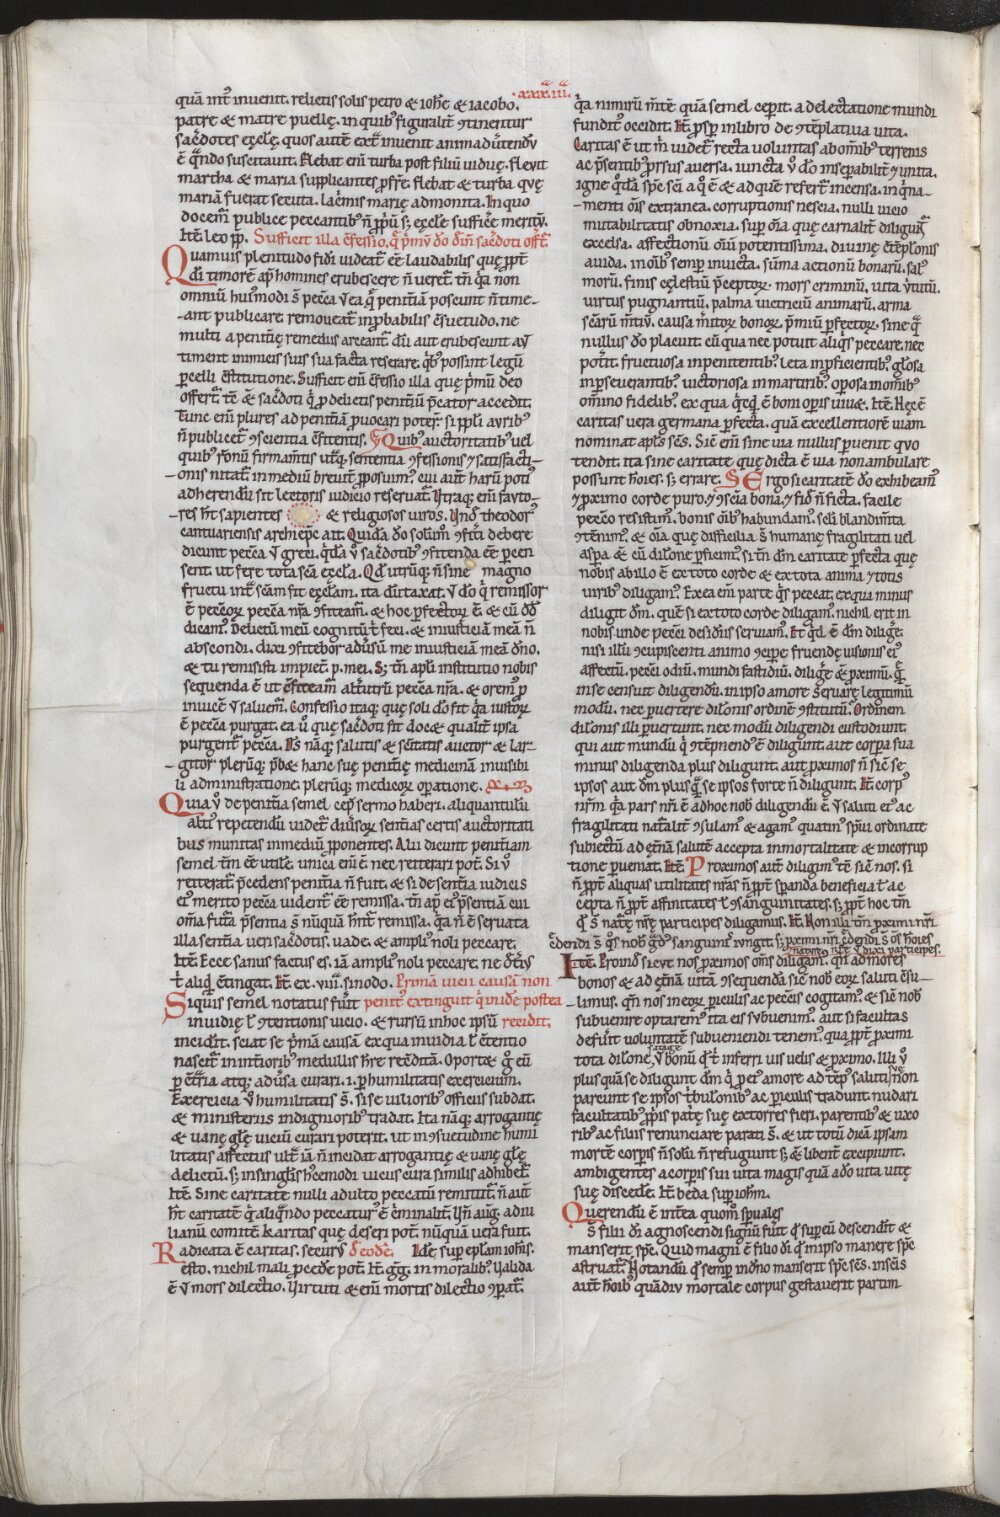 .xxx.iii.
quā int͛ inuenit. relictis solis petro & ioh̄e & iacobo.
patre & matre puellę. in quib; figuralit͛ 9tinentur
sac̄dotes ęcclę. quos autē ext͛ inuenit animaduͥtendū
ē qn̄do suscitauit. Flebat eni᷑ turba post filiū uiduę. fleuit
martha & maria supplicantes p̄ frē. flebat & turba quę
mariā fuerat secuta. lac̄mis marię admonita. In quo
docem̄ publice peccantib; n̄ ꝓpū s; ęcclę sufficͤ meritū.
Itē leo pp. Sufficit illa c̄fessio, q̄ pͥmū dō dīn sac̄doti offͭ͛.
Quamuis plenitudo fidi uideat᷑ eē laudabilis quę ꝓpt͛
dī timorē ap̄ homines erubescere n̄ ueret᷑. tn̄ qͥa non
omniū hui᷒modi s̄ pecc̄a ut ea q̄ penitn̄iā poscunt n̄ time-
-ant publicare. remoueat᷑ inꝓbabilis c̄suetudo. ne
multi a penitn̄ię remediis arceant᷑. dū aut erubescunt aut
timent inimicis suis sua facta reserare. qͥb; possint legū
ꝑcelli c̄stitutione. Sufficit eni᷑ c̄fessio illa quę pͥmū deo
offert᷑. tc̄ & sac̄doti qͥ ꝓ delictis penitn̄tiū p̄cator accedit.
Tunc eni᷑ plures ad penitn̄iā ꝓuocari poter̄t. si ppl̄i aurib;
n̄ publicet᷑ 9scientia c̄fitentis. Quib; auctoritatib; uel
quib; rōnū firmam̄tis utͣq; sententia 9fessionis 7 satisfacti-
-onis nitat᷑. in mediū breuit͛ ꝓposuim᷒. cui aut̄ harū poti᷒
adherendū sit lectoris iudicio reseruat᷑. Utraq; eni᷑ fauto-
-res h̄t sapientes & religiosos uiros. Unō theodor᷒
cantuariensis archiep̄c ait. Quidā dō solūm 9fiteri debere
dicunt pecc̄a ut greci. qͥdā ū sac̄dotib; 9fitenda eē percen
sent. ut fere tota sc̄a ęccl̄a. Qd̄ utrūq; n̄ sine magno
fructu int͛ sc̄am fit ęccl̄am. ita dūtaxat. ut dō qͥ remissor
ē pecc̄orꝫ pecc̄a nr̄a 9fiteam᷑. & hoc ꝑfectorꝫ ē. & cū dd̄
dicam᷒. Delictū meū cognitū t̄ feci. & iniusticiā meā n̄
abscondi. dixi 9fitebor aduͥsū me iniusticiā meā dn̄o.
& tu remisisti impiet͛. p. mei. S; tn̄ apl̄i institutio nobis
sequenda ē ut c̄fiteam᷑ altͣutrū pecc̄a nr̄a. & orem᷒ ꝓ
inuicē ut saluem᷑. Confessio itaq; quę soli dō fit qͣ iustorꝫ
ē pecc̄a purgat. ea ū quę sac̄doti fit docet qualit͛ ipsa
purgent᷑ pecc̄a. Ds̄ nāq; salutis & sc̄itatis auctor & lar-
-gitor plerūq; p̄bet hanc suę penitn̄ię medicinā inuisibi
li administratione. plerūq; medicorꝫ oꝑatione.
Quia ū de penitn̄ia semel cepͥt sermo haberi. aliquantulū
alti᷒ repetendū uidet᷑. diuͥsorꝫ sentn̄ias certis auctoritati
bus munitas in mediū ꝓponentes. Alii dicunt penitn̄iam
semel tn̄ eē utilē. unica eni᷑ ē. nec reiterari pot̄. Si ū
reiterat᷑. p̄cedens penitn̄ia n̄ fuit. & si de sentn̄ia iudicis
ei᷒ merito pecc̄a uident᷑ eē remissa. tn̄ ap̄ ei᷒ p̄sentiā cui
om̄ia futͣa p̄sentia s̄ nūquā hn̄t᷑ remissa. qͥa n̄ ē seruata
illa sentn̄ia ueri sac̄dotis. uade. & ampli᷒ noli peccare.
Itē. Ecce sanus factus es. iā ampli᷒ noli peccare. ne det͛i᷒
t̄ aliqͥd c̄tingat. It̄. ex .viii. sinodo. Primā uicii causam non
Siquis semel notatus fuͥit penit᷒ extinguit qͥ in idē postea
inuidię ł 9tentionis uicio. & rursū in hoc ipsū recidit.
incidit. sciat se pͥmā causā ex qua inuidia ł c̄tentio
nascit᷑ in int͛iorib; medullis hr̄e recōditā. Oportet g̊ eū
ꝑ c̄tͣria atq; aduͥsa curari .i. ꝑ humilitatis exercicium.
Exercicia ū humilitatis s̄. si se uiliorib; officiis subdat.
& ministeriis indigniorib; tradat. Ita nāq; arrogantię
& uanę gl̄ę uiciū curari poterit. ut in 9suetudine humi
litatis affectus ultͣ iā n̄ incidat arrogantię & uanę gl̄ę
delictū. s; in singl̄is h᷒cemodi uiciis cura similis adhibet᷑.
Itē. Sine caritate nulli adulto peccatū remittit᷑. n̄ aut̄
h̄t caritatē qͥ aliqn̄do peccatur᷒ ē cͥminalit͛. Un̄ aug. ad iu
lianū comitē. karitas quę deseri pot̄. nūquā uera fuit.
Radicata ē caritas. securus ēsto. Idē sup epl̄am ioh̄is.
ēsto. nichil mali ꝓcedͤe pot̄. It̄. gg̃. in moralib; Ualida
ē ut mors dilectio. Uirtuti & eni᷑ mortis dilectio 9ꝑat᷑.
qͥa nimirū m̄tē quā semel cepit. a delectatione mundi
fundit᷒ occidit. It̄. ꝓsꝑ in libro de 9tēplatiua uita.
Caritas ē ut m̄ uidet᷑ recta uoluntas ab omīb; terrenis
ac p̄sentib; ꝓrsus auersa. iuncta ū dō inseꝑabilit͛ 7 unita.
igne qͦdā sp̄c sc̄i a qͦ ē & ad quē refert᷑ incensa. in qͥna-
-menti oīs extranea. corruptionis nescia. nulli uicio
mutabilitatis obnoxia. sup oīa quę carnalit͛ diligunt᷑
excelsa. affectionū oīū potentissima. diuinę c̄tēpl̄onis
auida. in oīb; semꝑ inuicta. sūma actionū bonarū. sal᷒
morū. finis cęlestiū p̄ceptorꝫ. mors criminū. uita uͥtutū.
uirtus pugnantiū. palma uictriciū animarū. arma
sc̄arū m̄tiū. causa m̄itorꝫ bonorꝫ. p̄miū ꝑfectorꝫ. sine qͣ
nullus dō placuit. cū qua nec potuit aliqͥs peccare. nec
potͤit. fructuosa in penitentib;. leta in ꝓficientib;. gl̄osa
in ꝑseuerantib;. uictoriosa in martirib;. oꝑosa in omīb;
om̄ino fidelib;. ex qua qͥcqͥd ē boni oꝑis uiuit. Itē. Hęc ē
caritas uera germana ꝑfecta. quā excellentiorē uiam
nominat apl̄s sc̄s. Sic eni᷑ sine uia nullus ꝑuenit quo
tendit. ita sine caritate quę dicta ē uia non ambulare
possunt hoīes. s; errare. Ergo si caritatē dō exhibeam᷒
7 ꝓximo corde puro. 7 9sciā bona. 7 fide n̄ ficta. facile
pecc̄o resistim᷒. bonis oīb; habundam᷒. sc̄li blandim̄ta
9tēnim᷒. & oīa quę difficilia s̄ humanę fragilitati uel
aspa & cū dil̄one ꝑficim᷒. si tn̄ dm̄ caritate ꝑfecta quę
nobis ab illo ē ex toto corde & ex tota anima 7 totis
uirib; diligam᷒. Ex ea eni᷑ parte qͥs peccat. ex qua minus
diligit dm̄. quē si ex toto corde diligam᷒. nichil erit in
nobis unde pecc̄i desidͤiis seruiam᷒. Et qͥd ē dm̄ diligͤe.
nisi illū 9cupiscenti animo 9cipͤe fruendę uisionis ei᷒
affectū. pecc̄i odiū. mundi fastidiū. diligͤe & ꝓximū. qͣ
in se censuit diligendū. in ipso amore seruare legitimū
modū. nec ꝑuertere dil̄onis ordinē 9stitutū. Ordinem
dil̄onis illi ꝑuertunt. nec modū diligendi custodiunt.
qui aut mundū qͥ 9tēpnend᷒ ē diligunt. aut corpa sua
minus diligenda plus diligunt. aut ꝓximos n̄ sic̄ se
ipsos aut dm̄ plusqͣ se ipsos forte n̄ diligunt. It̄. corp᷒
nr̄m qͥa pars nr̄i ē ad hoc nob̄ diligendū ē. ut saluti ei᷒ ac
fragilitati naturalit͛ 9sulam᷒. & agam᷒ quatin᷒ sp̄ui ordinate
subiectū. ad ęt̄nā salutē accepta inmortalitate & incorrup
tione ꝑueniat. Itē. Proximos aut̄ diligim᷒ tc̄ sic̄ nos. si
n̄ ꝓpt͛ aliquas utilitates nr̄as n̄ ꝓpt͛ sꝑanda beneficia ł ac
cepta n̄ ꝓpt͛ affinitates ł 9sanguinitates. s; ꝓpt͛ hoc tn̄
qd̄ s̄ natͣę nr̄ę participes diligamus. It̄. Non illi tn̄ ꝓximi nr̄i
c̄dendi s̄ qͦs nob̄ gͣd᷒ sanguini᷒ iungit. s; ꝓximi nr̄i c̄dendi s̄ oēs hoīes
natͣę nr̄ę ut dixi participes.
Itē. Proinde sicut nos ꝓximos oīs diligam᷒. qn̄ ad mores
bonos & ad ęt̄nā uitā 9sequendā sic̄ nob̄ eorꝫ saluti c̄su-
-limus. qn̄ nos in eorꝫ ꝑiculis ac pecc̄is cogitam᷒. & sic̄ nob̄
subuenire optarem᷒ ita eis subuenim᷒. aut si facultas
defuͥit uoluntatē subueniendi tenem᷒. quaꝓpt͛ ꝓximi
tota dil̄o ē. ut bonū qd̄ t̄ inferri uis uelis & ꝓximo. Illi ū
plus quā se diligunt dm̄ qͥ ꝓ ei᷒ amore ad tēp᷒ saluti suę non
parcunt. se ipsos tͥbul̄onib; ac ꝑiculis tradunt. nudari
facultatib; ꝓpͥis patͥę suę extorres fieri. parentib; & uxo
rib; ac filiis renunciare parati s̄. & ut totū dicā ipsam
mortē corpis n̄ solū n̄ refugiunt s; & libent͛ excipiunt.
ambigentes a corpis sui uita magis quā a dō uita uitę
suę discedͤe. It̄. beda sup ioh̄m.
Querendū ē int͛ea quom̊ sp̄uales
s̄ filii dī. agnoscendi signū fuͥit qd̄ sup eū descendͤit &
manserit sp̄c. Quid magni ē filio dī qd̄ in ipso manere sp̄c
astruat᷑. Notandū qd̄ semꝑ in dn̄o manserit sp̄c sc̄s. in sc̄is
aut̄ hoīb; quādiu mortale corpus gestauerit partim